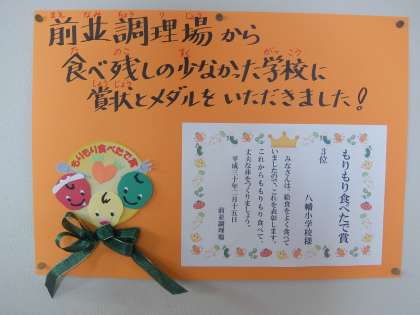 前並調理場から
食べ残しの少なかった学校に
賞状とメダルをいただきました!
もりもり食べたで賞
もりもり食べたで賞
3位
八幡小学校様
みなさんは、給食をよく食べて
いましたので、これを表彰します。
これからももりもり食べて、
丈夫な体をつくりましょう。
平成三十年二月十五日
前並調理場